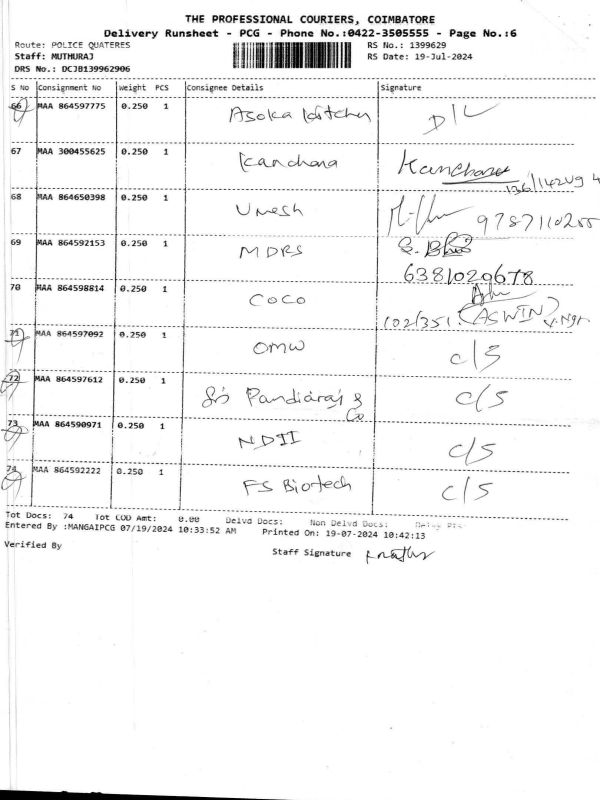 THE PROFESSIONAL COURIERS, COIMBATORE
Delivery Runsheet - PCG - Phone No.:0422-3505555 - Page No.:6
Route: POLICE QUATERES RS No.: 1399629
Staff: MUTHURAJ RS Date: 19-Jul-2024
DRS No.: DCJB139962906
S No Consignment No Weight PCS Consignee Details Signature
66 MAA 864597775 0.250 1 Asoka kitchen D/L
67 MAA 300455625 0.250 1 Kanchana Kanchana
68 MAA 864650398 0.250 1 Umesh 9787110255
69 MAA 864592153 0.250 1 MDRS
6381020678
70 MAA 864598814 0.250 1 COCO
102/351. (ASWIN) V.Ngr
71 MAA 864597092 0.250 1 OMW C/S
72 MAA 864597612 0.250 1 Sri Pandiaraj & Co C/S
73 MAA 864590971 0.250 1 NDII C/S
74 MAA 864592222 0.250 1 FS Biotech C/S
Tot Docs: 74 Tot COD Amt: 0.00 Delvd Docs: Non Delvd Docs:
Entered By :MANGAIPCG 07/19/2024 10:33:52 AM Printed On: 19-07-2024 10:42:13
Verified By
Staff Signature